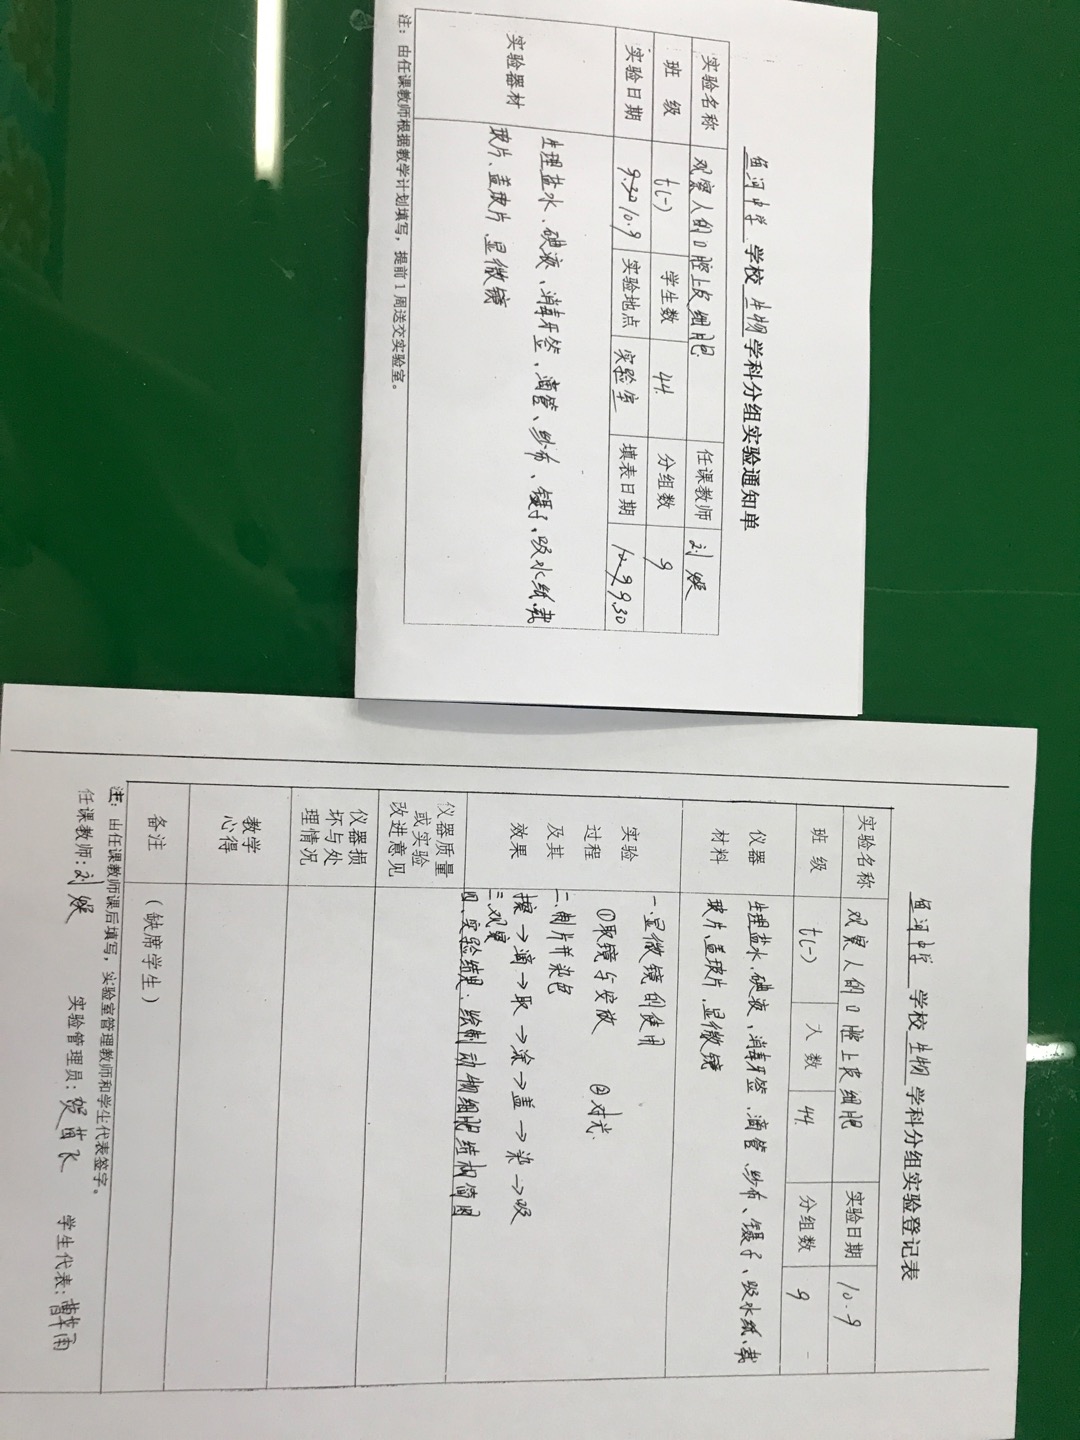 鱼河中学 学校 生物 学科分组实验通知单
实验名称 观察人的口腔上皮细胞 任课教师 刘媛
班 级 七(一) 学生数 44 分组数 9
实验日期 9.30 10.9 实验地点 实验室 填表日期 10.9 9.30
实验器材
生理盐水、碘液、消毒牙签、滴管、纱布、镊子、吸水纸、载
玻片、盖玻片、显微镜
注：由任课教师根据教学计划填写，提前1周送交实验室。
鱼河中学 学校 生物 学科分组实验登记表
实验名称 观察人的口腔上皮细胞 实验日期 10.9
班 级 七(一) 人 数 44 分组数 9
仪器
材料
生理盐水、碘液、消毒牙签、滴管、纱布、镊子、吸水纸、载
玻片、盖玻片、显微镜
实验
过程
及其
效果
一.显微镜的使用
①取镜与安放 ②对光.
二.制片并染色
擦→滴→取→涂→盖→染→吸
三.观察
四.实验结果：绘制动物细胞结构简图
仪器质量
或实验
改进意见
仪器损
坏与处
理情况
教学
心得
备注 （缺席学生）
注：由任课教师课后填写，实验室管理教师和学生代表签字。
任课教师：刘媛 实验管理员：贺苗飞 学生代表：雨